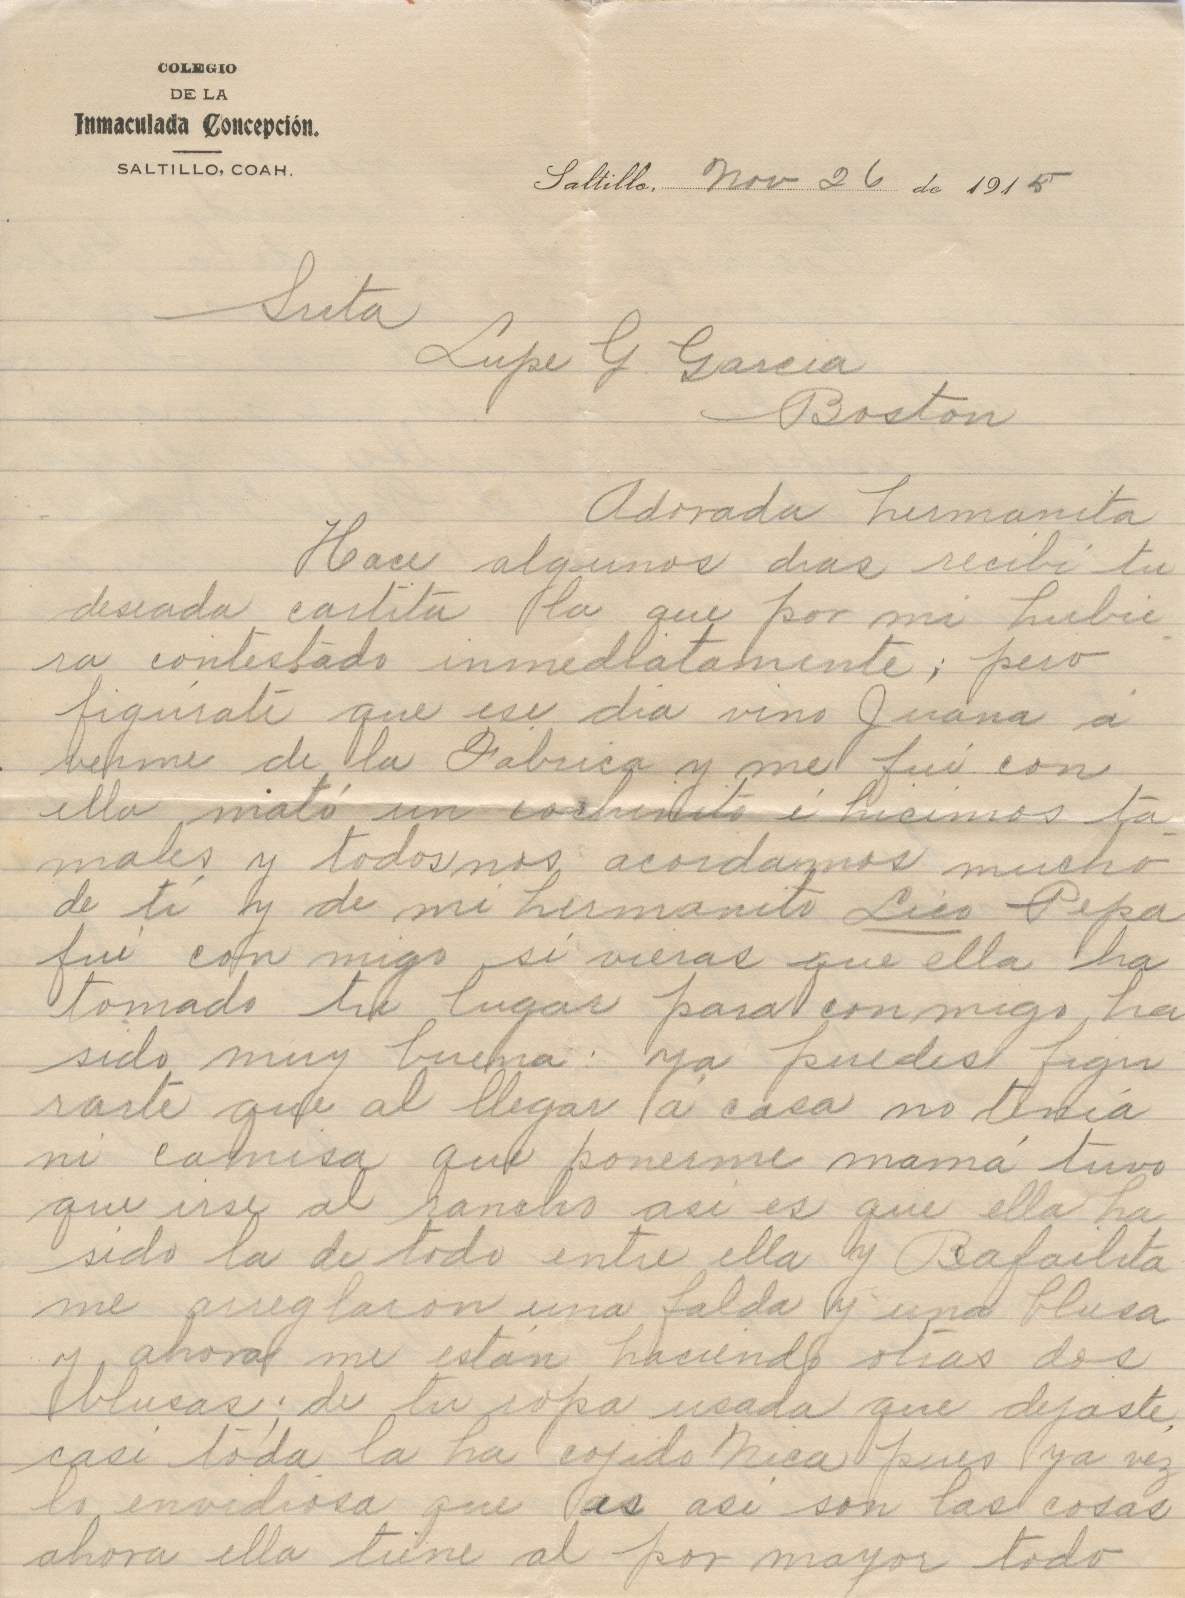 COLEGIO
DE LA
Inmaculada Concepción.
SALTILLO, COAH.
Saltillo, Nov 26 de 1915
Srita
Lupe G. Garcia
Boston
Adorada hermanita
Hace algunos dias recibí tu
deseada cartita la que por mi hubie
ra contestado inmediatamente; pero
figúrate que ese dia vino Juana á
verme de la Fábrica y me fuí con
ella mató un cochinito é hicimos ta
males y todos nos acordamos mucho
de tí y de mi hermanito Lico Pepa
fué con migo si vieras que ella ha
tomado tu lugar para conmigo ha
sido muy buena: ya puedes figu
rarte que al llegar á casa no tenía
ni camisa que ponerme mamá tuvo
que irse al rancho asi es que ella ha
sido la de todo entre ella y Rafaelita
me arreglaron una falda y una blusa
y ahora me están haciendo otras dos
blusas; de tu ropa usada que dejaste,
casi toda la ha cojido Nica pues ya vez
lo envidiosa que es asi son las cosas
ahora ella tiene al por mayor todo